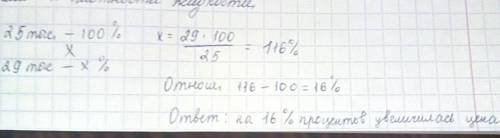 жидкости.
25 тыс. – 100 %
x
29 тыс – x %
x = 29 · 100 / 25 = 116%
Относ. 116 – 100 = 16 %
Ответ: на 16 % процентов увеличилась цена